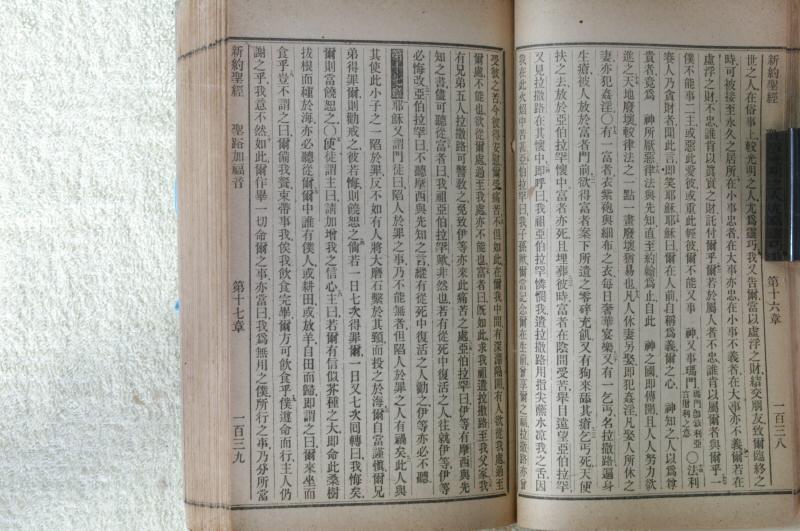 新約聖經 第十六章 一百三八
世之人在俗事上較光明之人尤為靈巧我又告爾當以虛浮之財結交朋友致爾臨終之
時可被接至永久之居所在小事忠者在大事亦忠在小事不義者在大事亦不義爾若在
虛浮之財不忠誰肯以眞實之財託付爾乎爾若於屬人者不忠誰肯以屬爾者與爾乎一
僕不能事二主或惡此愛彼或重此輕彼爾不能又事 神又事瑪門瑪門卽錢財利亞言財利之意〇法利
賽人乃貪財者聞此言卽笑耶穌耶穌曰爾在人前自稱爲義爾之心 神知之人以爲尊
貴者竟爲 神所厭惡律法與先知直至約翰爲止自此 神之國卽傳開且人人努力欲
進之天地廢壞較律法之一點一畫廢壞猶易也凡人休妻另娶卽犯姦淫凡娶人所休之
妻亦犯姦淫〇有一富者衣紫袍與細布之衣每日奢華宴樂又有一乞丐名拉撒路遍身
生瘡被人放於富者門前欲得富者案下所遺之零碎充飢又有狗來舐其瘡乞丐死天使
扶之去放於亞伯拉罕懷中富者亦死且埋葬彼時富者在陰間受苦舉目遠望亞伯拉罕
又見拉撒路在其懷中卽呼曰我祖亞伯拉罕憐憫我遣拉撒路用指尖蘸水涼我之舌因
我在此火焰中苦甚亞伯拉罕曰我子孫歟爾當記念爾在生前曾享爾之福拉撒路亦曾
受彼之苦今彼得安慰爾受痛苦不但如此在爾我中間有深淵隔開有人欲從我處過至
爾處不能也欲從爾處過至我處亦不能也富者曰旣如此求我祖遣拉撒路至我父家我
有兄弟五人拉撒路可警教之免致伊等亦來此痛苦之處亞伯拉罕曰伊等有摩西與先
知之書儘可聽從富者曰我祖亞伯拉罕歟非然也若有從死中復活之人往就伊等伊等
必悔改亞伯拉罕曰不聽摩西與先知之言縱有從死中復活之人勸之伊等亦必不聽
第十七章耶穌又謂門徒曰陷人於罪之事乃不能無者但陷人於罪之人有禍矣此人與
其使此小子之一陷於罪反不如有人將大磨石繫於其頸而投之於海爾自當謹愼爾兄
弟得罪爾則勸戒之彼若悔則饒恕之倘若一日七次得罪爾一日又七次囘轉曰我悔矣
爾則當饒恕之〇使徒謂主曰請加增我之信心主曰若爾有信似芥種之大卽命此桑樹
拔根而種於海亦必聽從爾爾中誰有僕人或耕田或放羊自田而歸卽謂之曰爾來坐而
食乎豈不謂之曰爾備我餐束帶事我俟我飲食完畢爾方可飲食乎僕遵命而行主人仍
謝之乎我意不然如此爾作畢一切命爾之事亦當曰我爲無用之僕所行之事乃分所當
新約聖經 聖路加福音 第十七章 一百三九